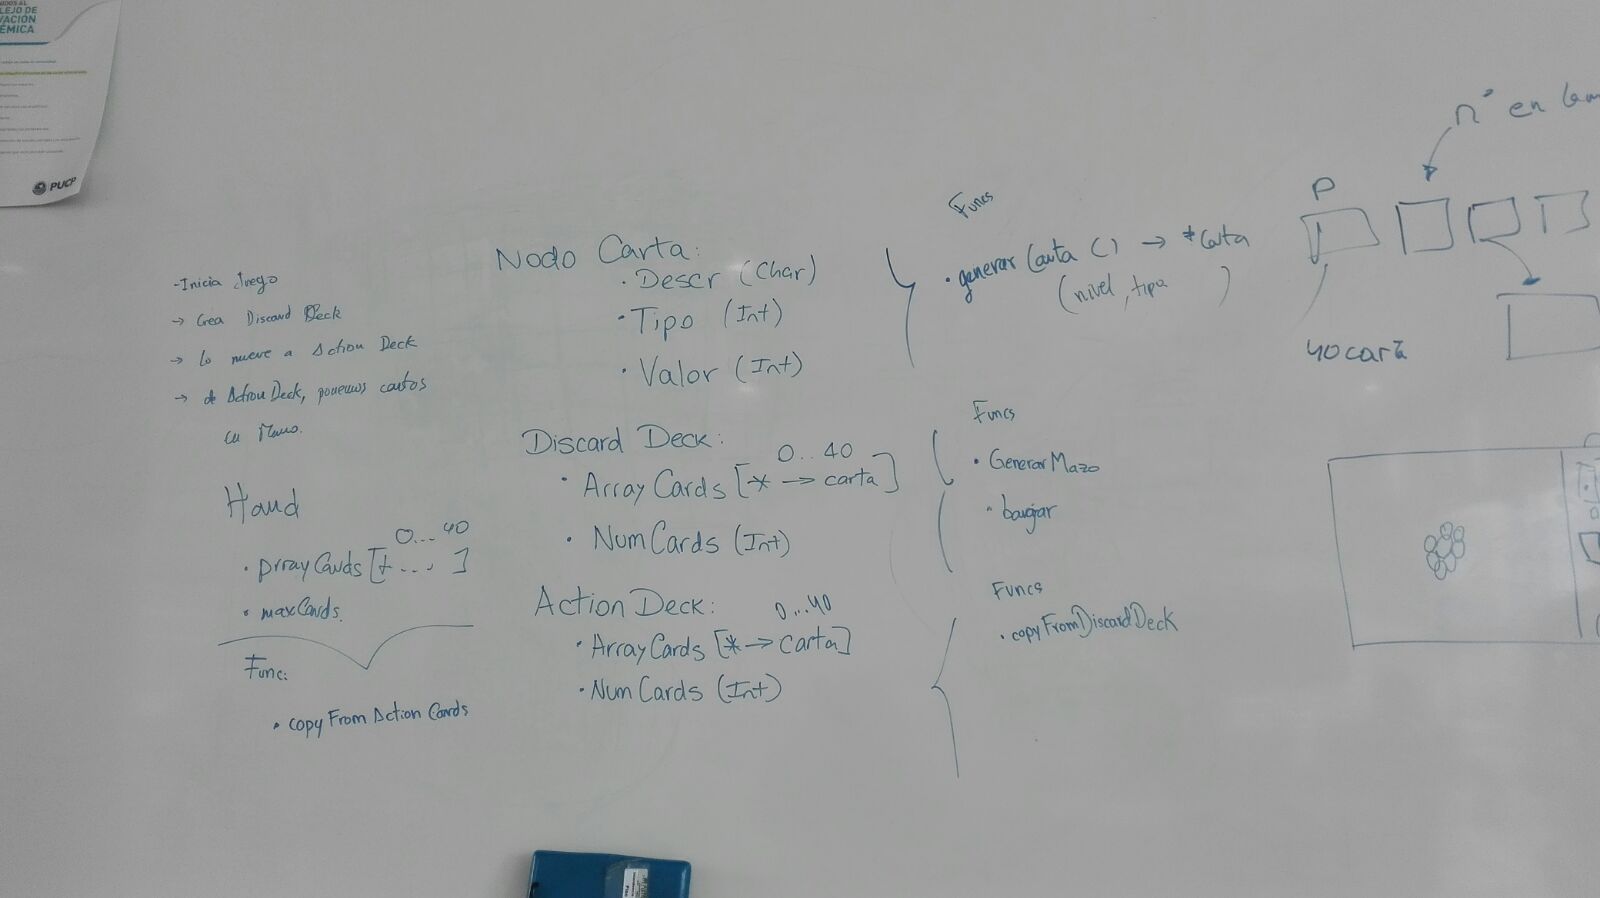 LEJO DE
VACIÓN
ÉMICA
PUCP
-Inicia Juego
→ Crea Discard Deck
→ lo mueve a Action Deck
→ de Action Deck, ponemos cartas
en Mano.
Hand
0...40
• ArrayCards [* ... ]
• maxCards.
Func:
• copyFromActionCards
Nodo Carta:
• Descr (Char)
• Tipo (Int)
• Valor (Int)
Discard Deck:
0..40
• ArrayCards [* → carta]
• NumCards (Int)
Action Deck:
0...40
• ArrayCards [* → Carta]
• NumCards (Int)
Funcs
• generar Carta () → *Carta
(nivel, tipo )
Funcs
• GenerarMazo
• barajar
Funcs
• copyFromDiscardDeck
n° en
P
40 carta